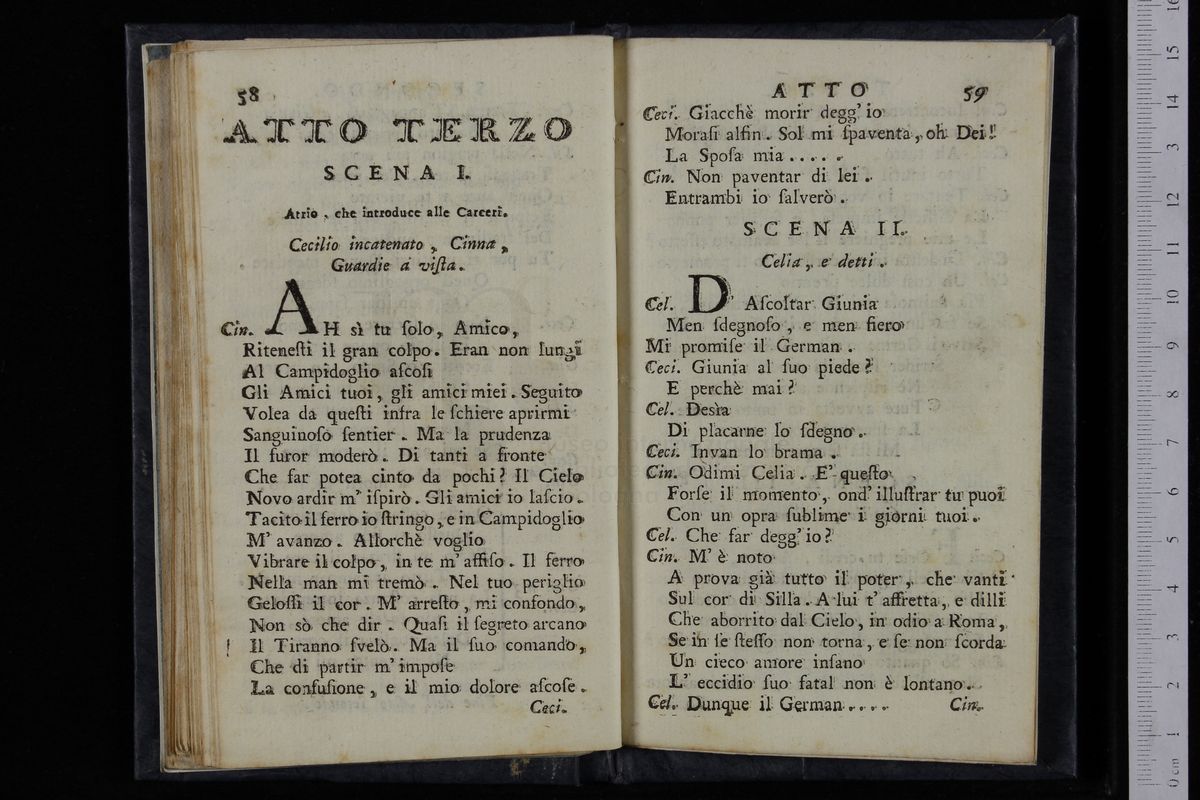 58
ATTO TERZO
SCENA I.
Atrio, che introduce alle Carceri.
Cecilio incatenato, Cinna,
Guardie a viſta.
Cin. AH sì tu ſolo, Amico,
Riteneſti il gran colpo. Eran non lungi
Al Campidoglio aſcoſi
Gli Amici tuoi, gli amici miei. Seguito
Volea da queſti infra le ſchiere aprirmi
Sanguinoſo ſentier. Ma la prudenza
Il furor moderò. Di tanti a fronte
Che far potea cinto da pochi? Il Cielo
Novo ardir m' iſpirò. Gli amici io laſcio.
Tacito il ferro io ſtringo, e in Campidoglio
M' avanzo. Allorchè voglio
Vibrare il colpo, in te m' affiſo. Il ferro
Nella man mi tremò. Nel tuo periglio
Geloſſi il cor. M' arreſto, mi confondo,
Non sò che dir. Quaſi il ſegreto arcano
Il Tiranno ſvelò. Ma il ſuo comando,
Che di partir m' impoſe
La confuſione, e il mio dolore aſcoſe.
Ceci.
ATTO 59
Ceci. Giacchè morir degg' io
Moraſi alfin. Sol mi ſpaventa, oh Dei!
La Spoſa mia.....
Cin. Non paventar di lei.
Entrambi io ſalverò.
SCENA II.
Celia, e detti.
Cel. D' Aſcoltar Giunia
Men ſdegnoſo, e men fiero
Mi promiſe il German.
Ceci. Giunia al ſuo piede?
E perchè mai?
Cel. Desìa
Di placarne lo ſdegno.
Ceci. Invan lo brama.
Cin. Odimi Celia. E' queſto
Forſe il momento, ond' illuſtrar tu puoi
Con un opra ſublime i giorni tuoi.
Cel. Che far degg' io?
Cin. M' è noto
A prova già tutto il poter, che vanti
Sul cor di Silla. A lui t' affretta, e dilli
Che aborrito dal Cielo, in odio a Roma,
Se in ſe ſteſſo non torna, e ſe non ſcorda
Un cieco amore inſano
L' eccidio ſuo fatal non è lontano.
Cel. Dunque il German....
Cin.